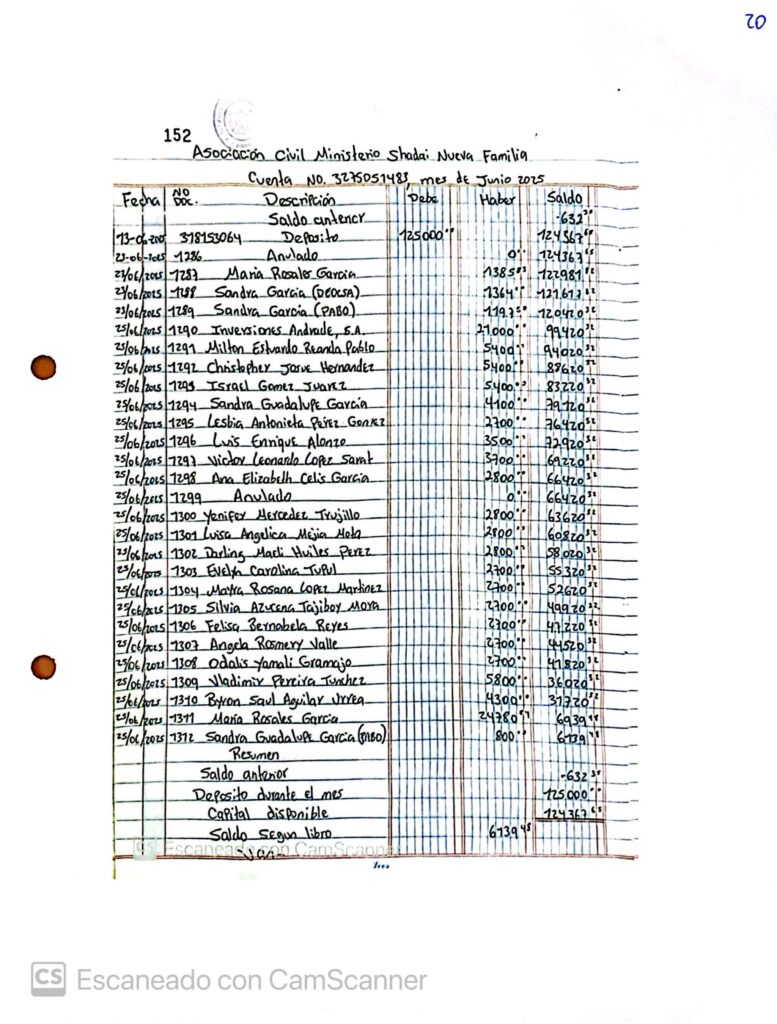 20
152
Asociación Civil Ministerio Shadai Nueva Familia
Cuenta No. 3275051483, mes de Junio 2025
Fecha NO DOC. Descripción Debe Haber Saldo
Saldo anterior -632³⁵
13-06-2025 318153064 Deposito 125000⁰⁰ 124367⁶⁵
23-06-2025 1286 Anulado 0⁰⁰ 124367⁶⁵
23/06/2025 1287 Maria Rosales Garcia 1385⁸³ 122981⁸²
23/06/2025 1288 Sandra Garcia (DEOCSA) 1364⁰⁰ 121617⁸²
23/06/2025 1289 Sandra Garcia (PABO) 1197⁵⁰ 120420³²
25/06/2025 1290 Inversiones Andrade, S.A. 21000⁰⁰ 99420³²
25/06/2025 1291 Milton Estuardo Pablo 5400⁰⁰ 94020³²
25/06/2025 1292 Christopher Hernandez 5400⁰⁰ 88620³²
25/06/2025 1293 Israel Gomez Juarez 5400⁰⁰ 83220³²
25/06/2025 1294 Sandra Guadalupe Garcia 4100⁰⁰ 79120³²
25/06/2025 1295 Lesbia Antonieta Perez Gomez 2700⁰⁰ 76420³²
25/06/2025 1296 Luis Enrique Alonzo 3500⁰⁰ 72920³²
25/06/2025 1297 Victor Leonardo Lopez Sarat 3700⁰⁰ 69220³²
25/06/2025 1298 Ana Elizabeth Celis Garcia 2800⁰⁰ 66420³²
25/06/2025 1299 Anulado 0⁰⁰ 66420³²
25/06/2025 1300 Yenifer Mercedez Trujillo 2800⁰⁰ 63620³²
25/06/2025 1301 Luisa Angelica Mejia Mota 2800⁰⁰ 60820³²
25/06/2025 1302 Darling Huiles Perez 2800⁰⁰ 58020³²
25/06/2025 1303 Evelyn Carolina Tupul 2700⁰⁰ 55320³²
25/06/2025 1304 Mayra Rosana Lopez Martinez 2700⁰⁰ 52620³²
25/06/2025 1305 Silvia Azucena Tajiboy Mora 2700⁰⁰ 49920³²
25/06/2025 1306 Felisa Bernabela Reyes 2700⁰⁰ 47220³²
25/06/2025 1307 Angela Rosmery Valle 2700⁰⁰ 44520³²
25/06/2025 1308 Odalis Yamali Gramajo 2700⁰⁰ 41820³²
25/06/2025 1309 Vladimir Pereira 5800⁰⁰ 36020³²
25/06/2025 1310 Byron Saul Aguilar Urrea 4300⁰⁰ 31720³²
25/06/2025 1311 Maria Rosales Garcia 24780 6939⁴⁸
25/06/2025 1312 Sandra Guadalupe Garcia (PABO) 800⁰⁰ 6139⁴⁸
Resumen
Saldo anterior -632³⁵
Deposito durante el mes 125000⁰⁰
Capital disponible 124367⁶⁵
Saldo segun libro 6139⁴⁸
-Van-
CS Escaneado con CamScanner
CS Escaneado con CamScanner